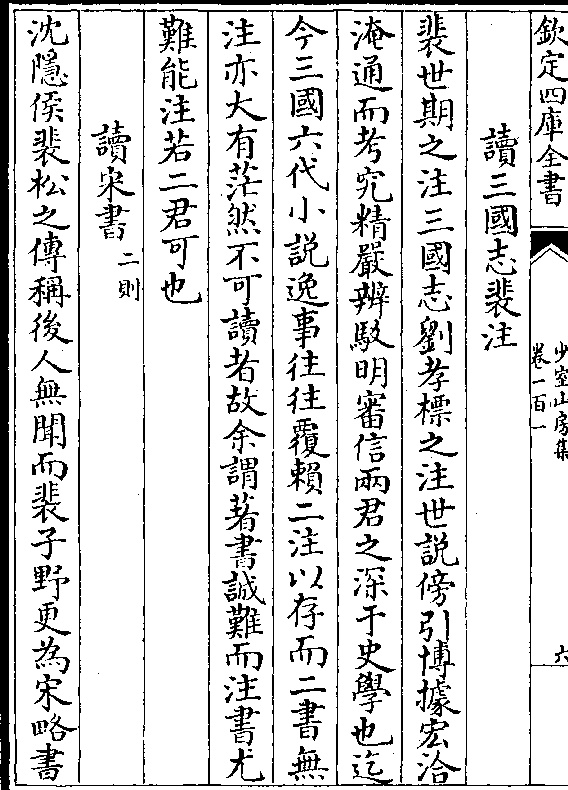 欽定四庫全書
少室山房集
卷一百一
六
讀三國志裴注
裴世期之注三國志劉孝標之注世說傍引博據宏洽
淹通而考究精嚴辨駁明審信兩君之深于史學也迄
今三國六代小說逸事往往覆賴二注以存而二書無
注亦大有茫然不可讀者故余謂著書誠難而注書尤
難能注若二君可也
讀宋書二則
沈隱侯裴松之傳稱後人無聞而裴子野更為宋略書